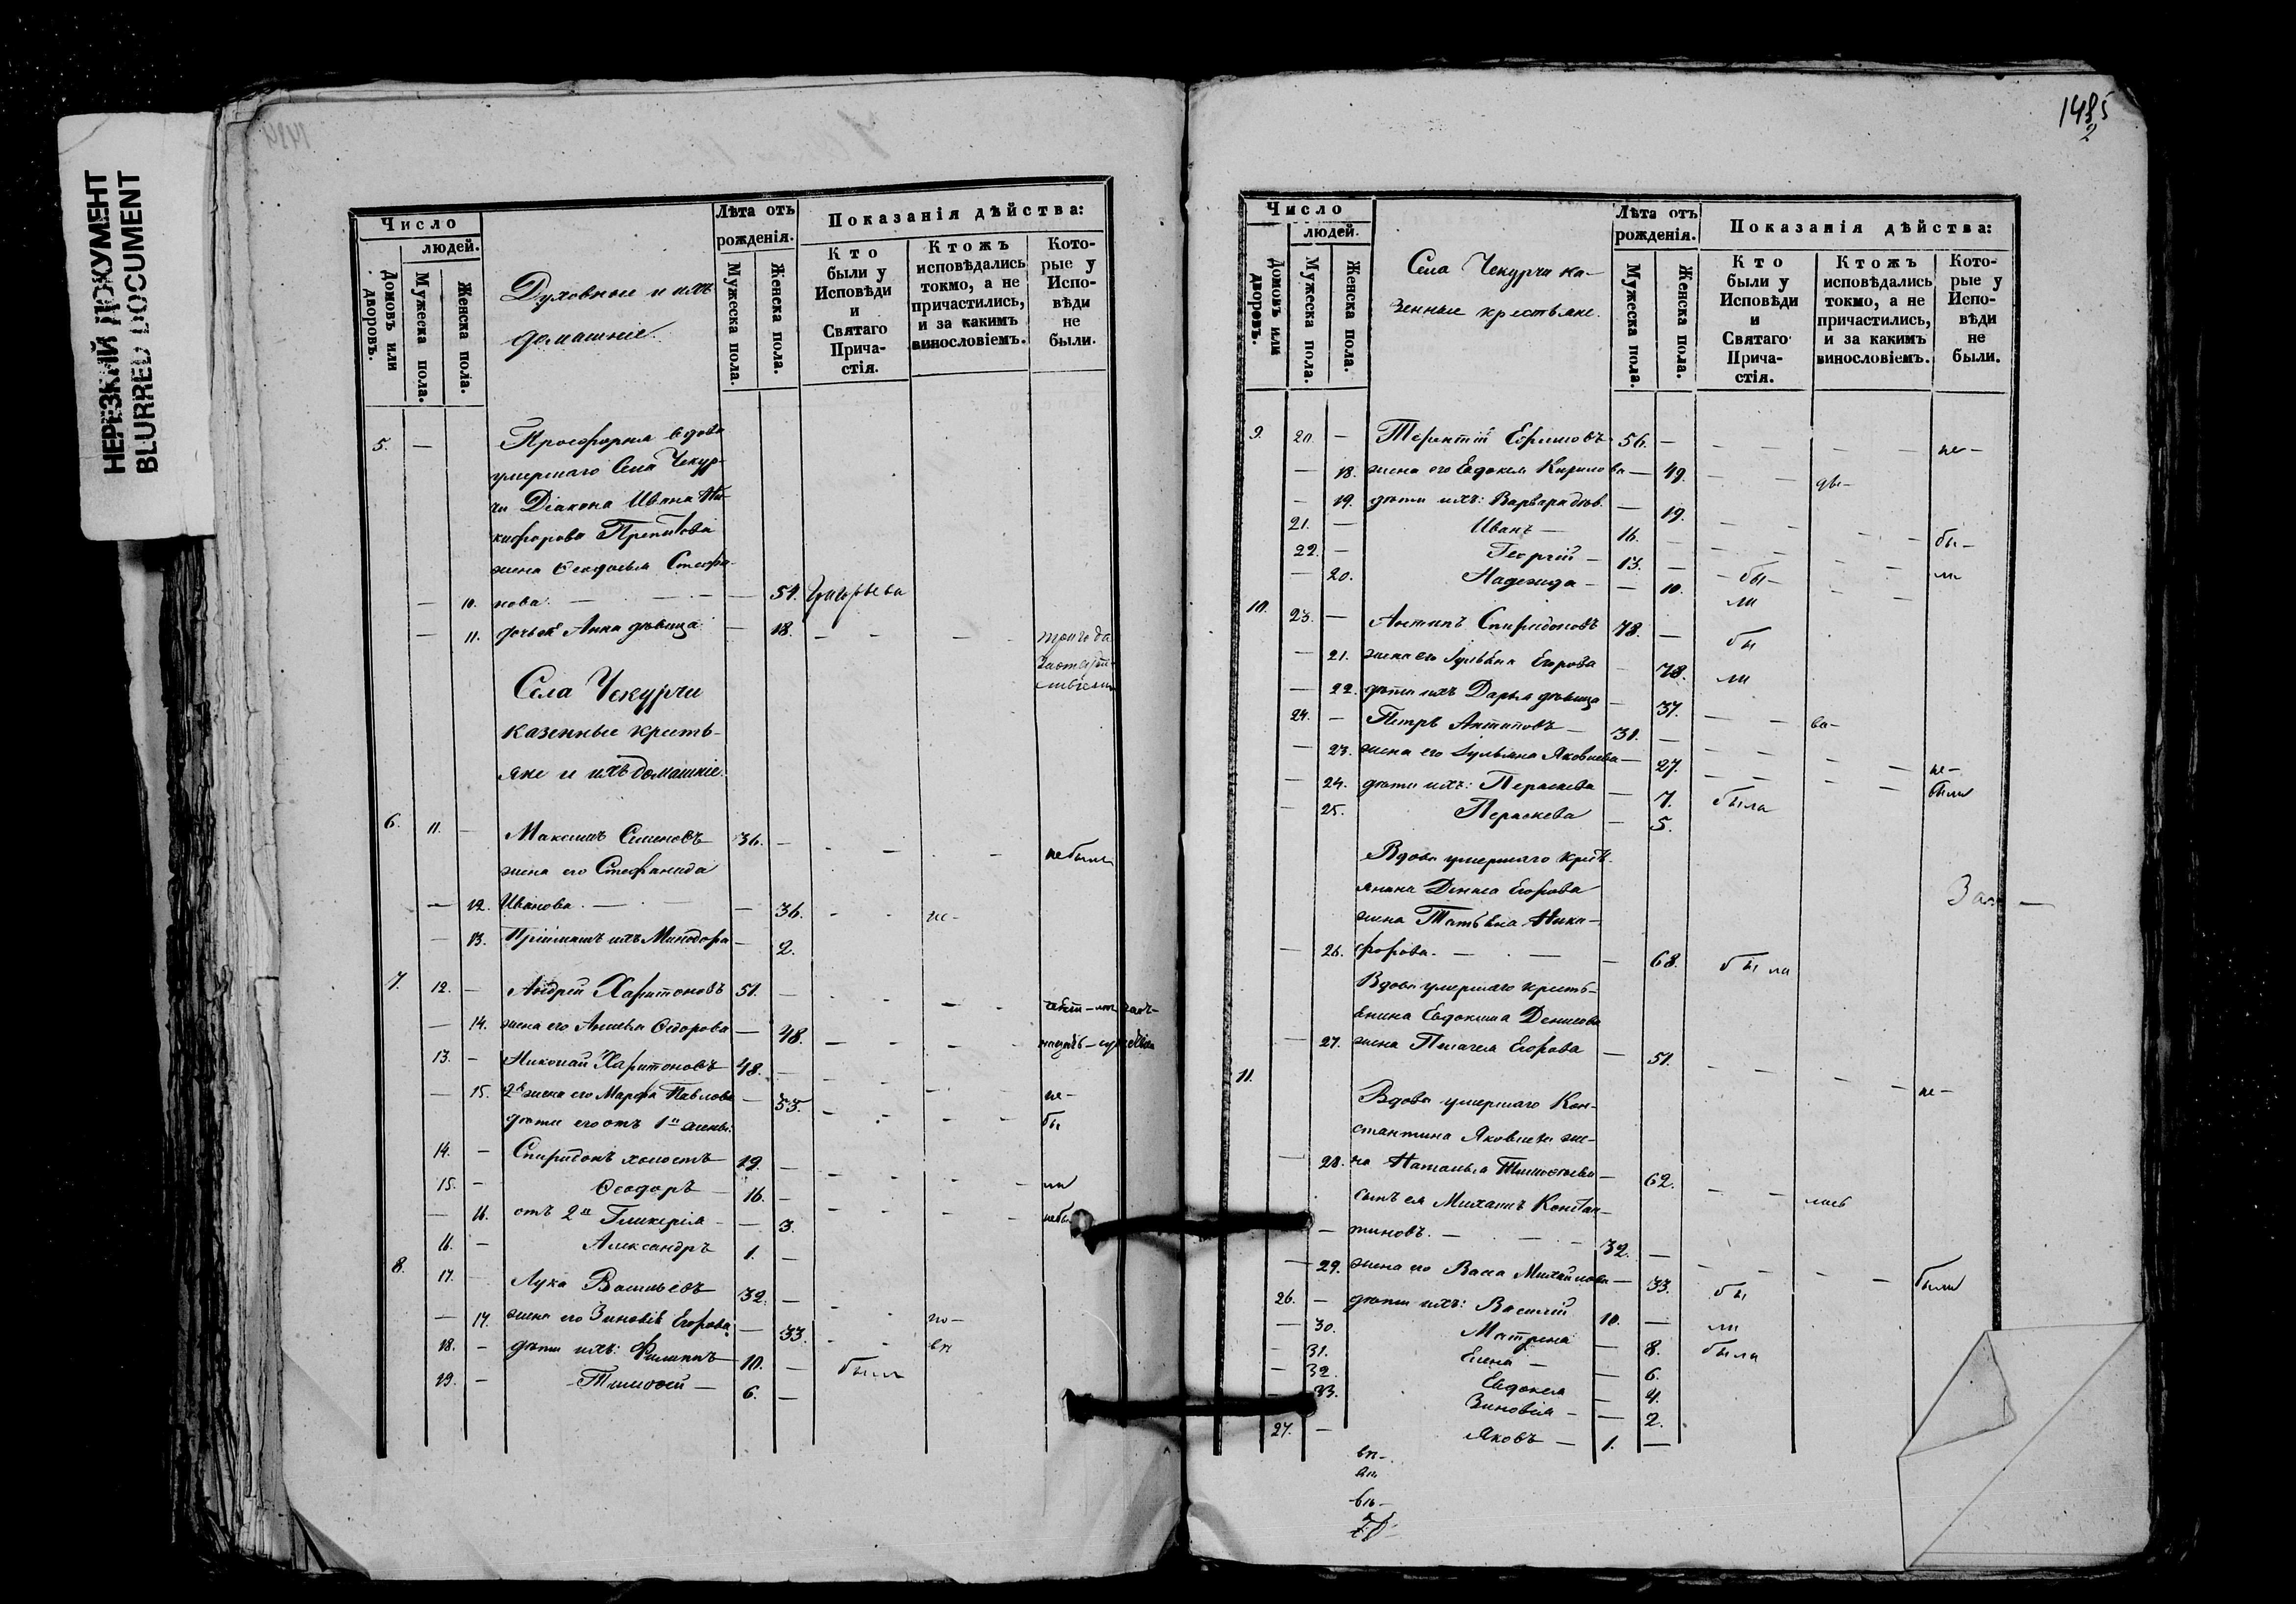 НЕРЕЗКИЙ ДОКУМЕНТ
BLURRED DOCUMENT
Число
людей.
Домовъ или дворовъ.
Мужеска пола.
Женска пола.
Духовные и ихъ
домашніе.
Лѣта отъ рожденія.
Мужеска пола.
Женска пола.
Показанія дѣйства:
Кто были у Исповѣди и Святаго Прича-стія.
Ктожъ исповѣдались токмо, а не причастились, и за какимъ винословіемъ.
Кото-рые у Испо-вѣди не были.
5. — Просфорня вдова
умершаго Села Чекур-
чи Діакона Ивана Ни-
кифорова
жена Ѳеодосья Стефа-
— 10. нова. — — 51.
— 11. дочь ея Анна дѣвица — 18. — — — —
Села Чекурчи
казенные кресть-
яне и ихъ домашніе.
6. 11. — Максимъ Семеновъ 36. — — — — не были
жена его Стефанида
— 12. Иванова. — — 36. — — не-
— 13. Пріимышъ ихъ Минодора — 2.
7. 12. — Андрей Харитоновъ 51. — — — —
— 14. жена его Анисья Ѳедорова — 48. — — — —
13. — Николай Харитоновъ 48. — — — — не-
— 15. 2я жена его Марѳа Павлова — 53. — — — — бы
дѣти его отъ 1й жены:
14. — Спиридонъ холостъ 19. — — — — ли
15. — Ѳеодоръ — 16. — — — —
— 16. отъ 2й Гликерія — — 3.
16. — Александръ 1. —
8. 17. — Лука Васильевъ 32. — — —
— 17. жена его Зиновія Егорова — 33. — —
18. — дѣти ихъ: Филиппъ 10. — были
19. — Тимоѳей — 6. —
1485
2
Число
людей.
Домовъ или дворовъ.
Мужеска пола.
Женска пола.
Села Чекурчи ка-
зенные крестьяне.
Лѣта отъ рожденія.
Мужеска пола.
Женска пола.
Показанія дѣйства:
Кто были у Исповѣди и Святаго Прича-стія.
Ктожъ исповѣдались токмо, а не причастились, и за какимъ винословіемъ.
Кото-рые у Испо-вѣди не были.
9. 20. — Терентій Ефимовъ 56. — — — — — не-
— 18. жена его Евдокія Кирилова — 49. — —
— 19. дѣти ихъ: Варвара дѣв. — 19. — — — —
21. — Иванъ — 16. — — — — — бы-
22. — Георгій — 13. — — бы- — — ли
— 20. Надежда — — 10. ли
10. 23. — Антипъ Спиридоновъ 78. — бы
— 21. жена его Іульяна Егорова — 78. ли
— 22. дѣти ихъ Дарья дѣвица — 37. — —
24. — Петръ Антиповъ — 31. — — — — —
— 23. жена его Іульяна Яковлева — 27. — — — — не-
— 24. дѣти ихъ: Параскева — 7. была были
— 25. Параскева — 5.
Вдова умершаго кресть-
янина Дениса Егорова
жена Татьяна Ники-
— 26. форова. — — — 68. была
Вдова умершаго кресть-
янина Евдокима Денисова
— 27. жена Пелагея Егорова — 51. — — — — не-
11. Вдова умершаго Кон-
стантина Яковлева же-
— 28. на Наталья Тимоѳеева — 62. — —
сынъ ея Михаилъ Констан-
— тиновъ. — — 32. — — — — —
— 29. жена его Васса Михайлова — 33. бы были
26. — дѣти ихъ: Василій 10. — ли
— 30. Матрена — 8. была
— 31. Елена — — 6.
— 32. Евдокія — 4.
— 33. Зиновія — — 2.
27. — Яковъ — 1. —